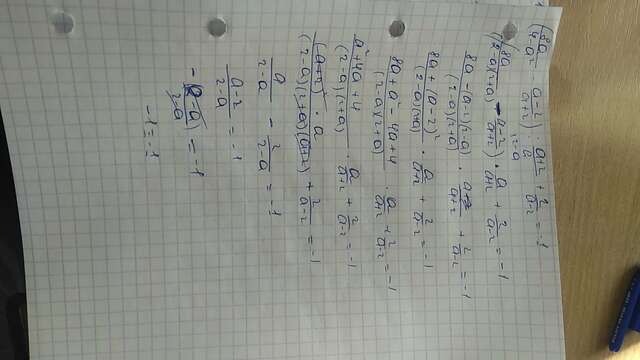 (8a/(4-a²) - (a-2)/(a+2)) : (a+2)/a + 2/(a-2) = -1
(8a/((2-a)(2+a)) - (a-2)/(a+2)) · a/(a+2) + 2/(a-2) = -1
(8a-(a-2)(2-a))/((2-a)(2+a)) · a/(a+2) + 2/(a-2) = -1
(8a+(a-2)²)/((2-a)(2+a)) · a/(a+2) + 2/(a-2) = -1
(8a+a²-4a+4)/((2-a)(2+a)) · a/(a+2) + 2/(a-2) = -1
(a²+4a+4)/((2-a)(2+a)) · a/(a+2) + 2/(a-2) = -1
((a+2)² · a)/((2-a)(2+a)(a+2)) + 2/(a-2) = -1
a/(2-a) - 2/(2-a) = -1
(a-2)/(2-a) = -1
-(2-a)/(2-a) = -1
-1 = -1